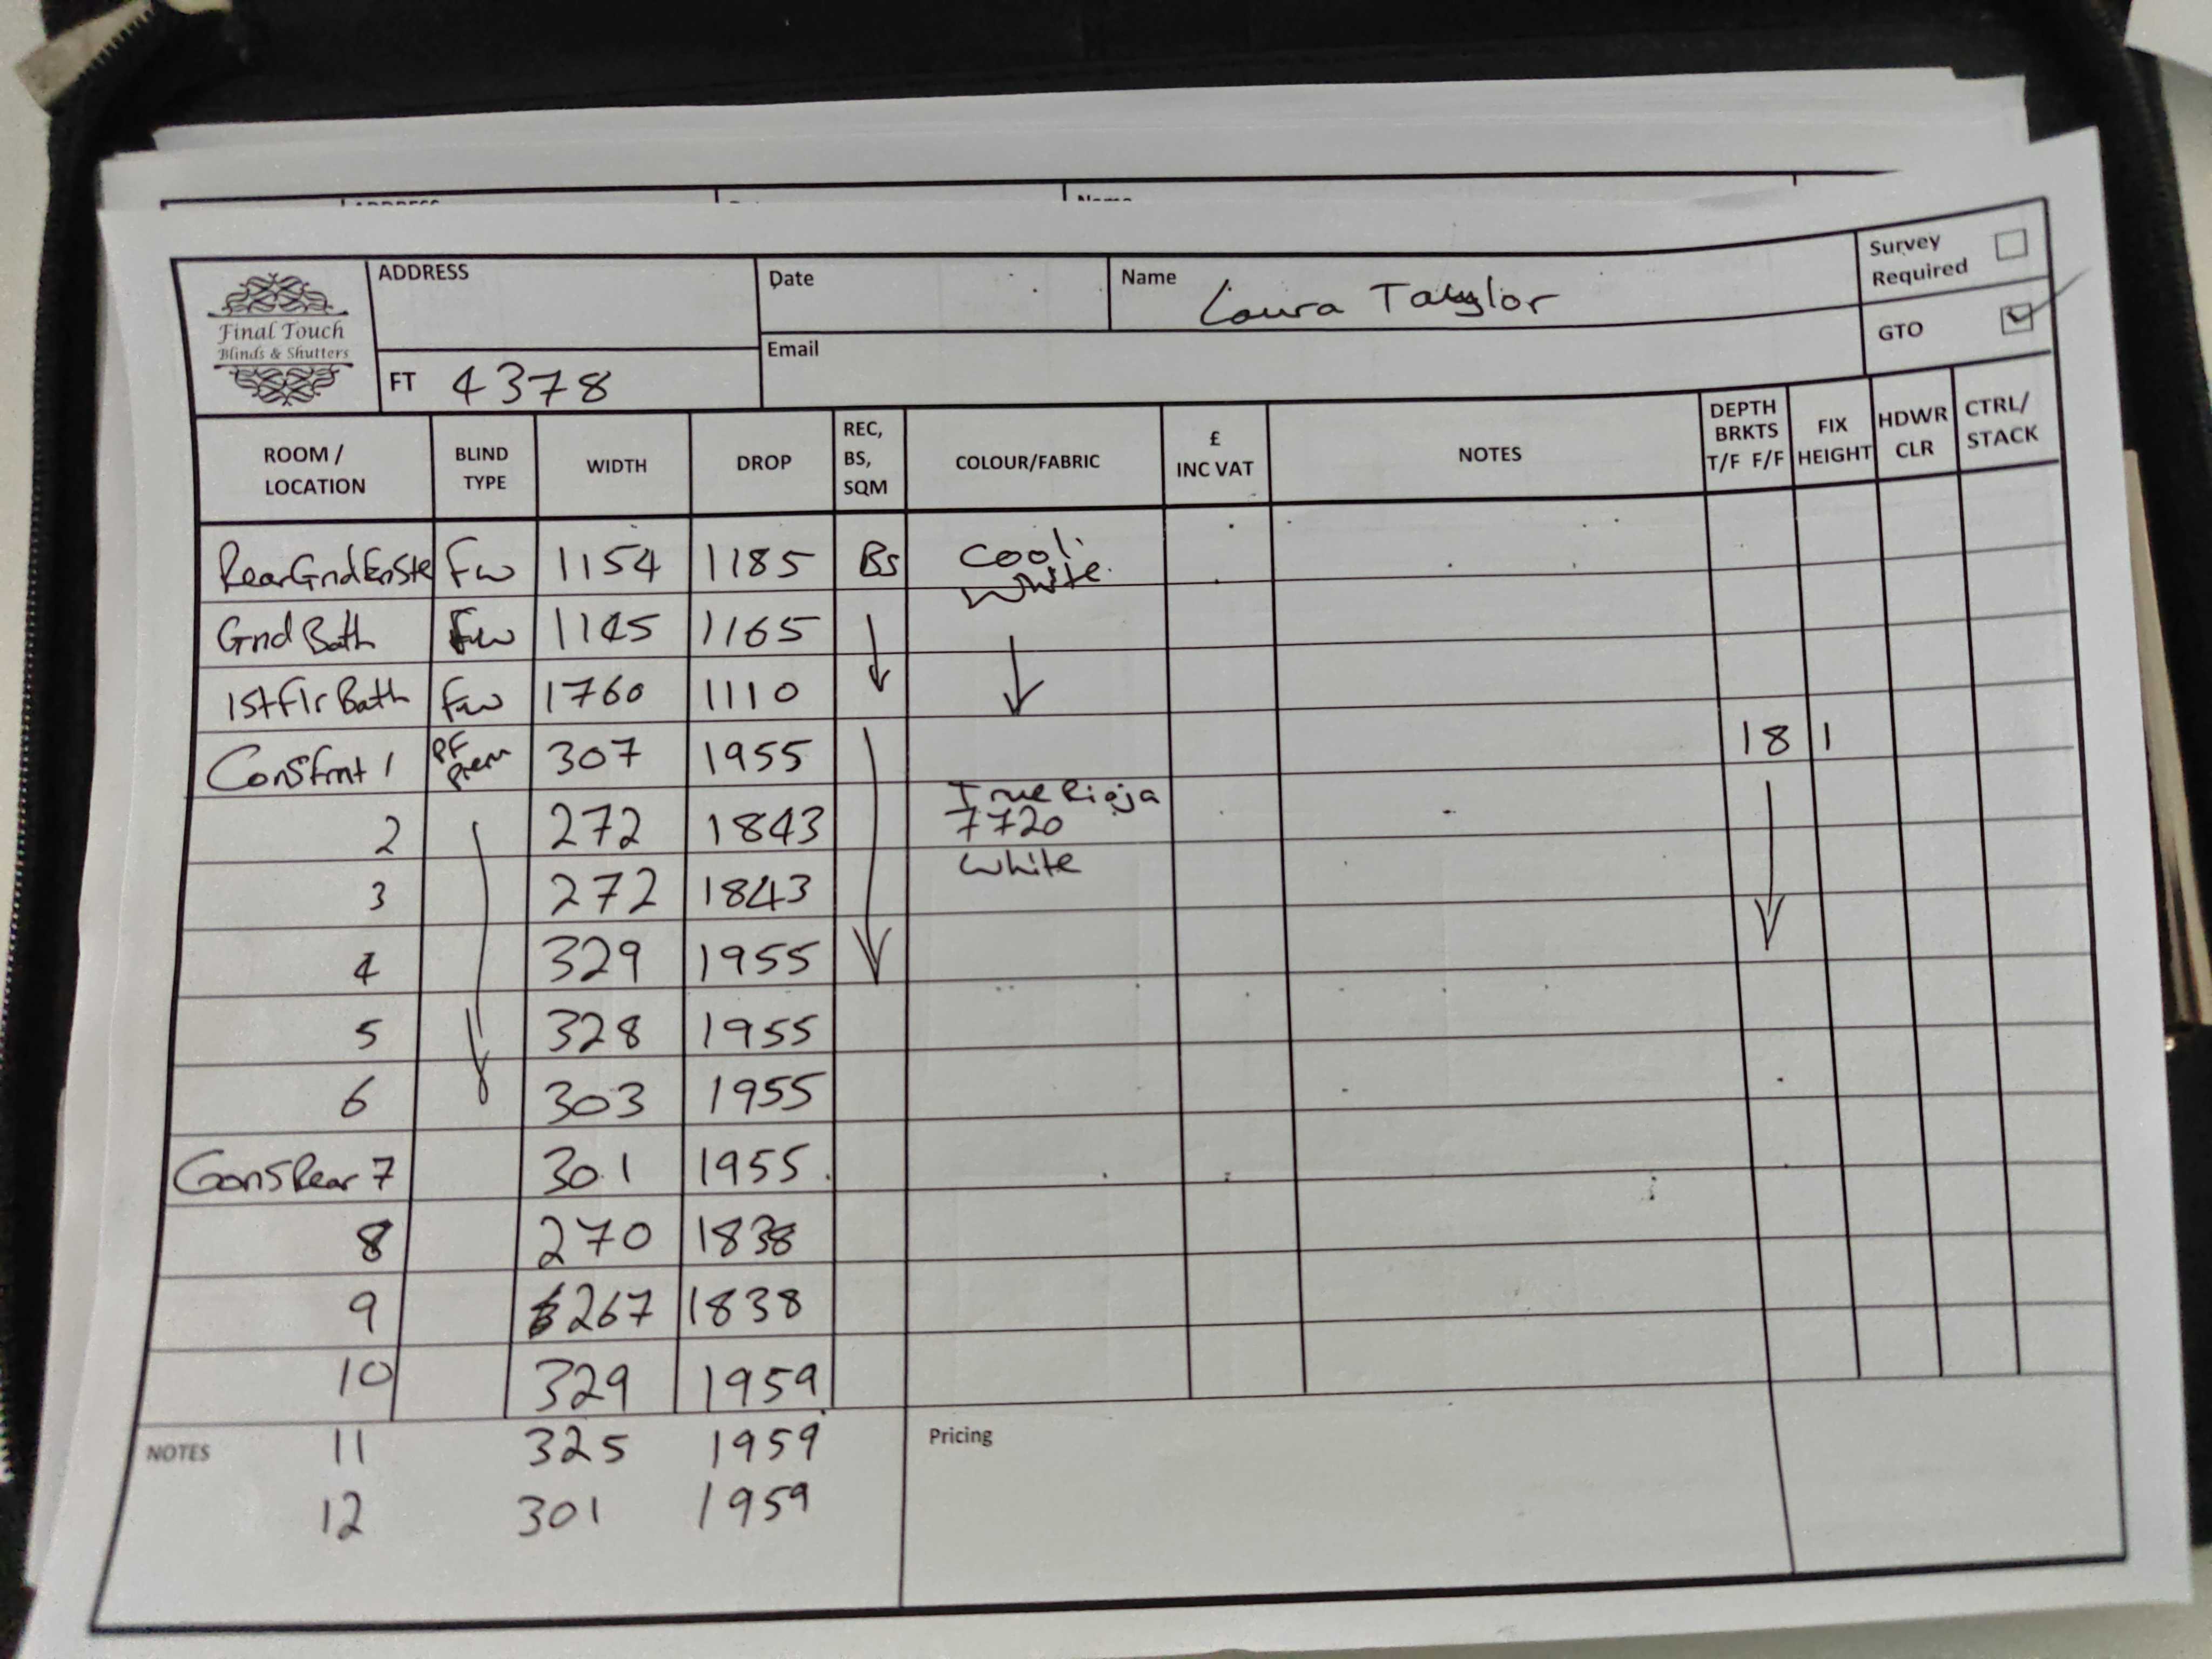 ADDRESS
Name
Final Touch
Blinds & Shutters
ADDRESS
Date
Name Laura Taylor
Survey Required
FT 4378
Email
GTO
ROOM / LOCATION BLIND TYPE WIDTH DROP REC, BS, SQM COLOUR/FABRIC £ INC VAT NOTES DEPTH BRKTS T/F F/F FIX HEIGHT HDWR CLR CTRL/ STACK
RearGndEnSte Fw 1154 1185 BS Cool White
Gnd Bath Fw 1145 1165
1st Flr Bath Fw 1760 1110
ConsFrnt 1 PF Prem 307 1955 18 1
2 272 1843 True Rioja 7720
3 272 1843 White
4 329 1955
5 328 1955
6 303 1955
ConsRear 7 301 1955
8 270 1838
9 267 1838
10 329 1959
NOTES 11 325 1959 Pricing
12 301 1959